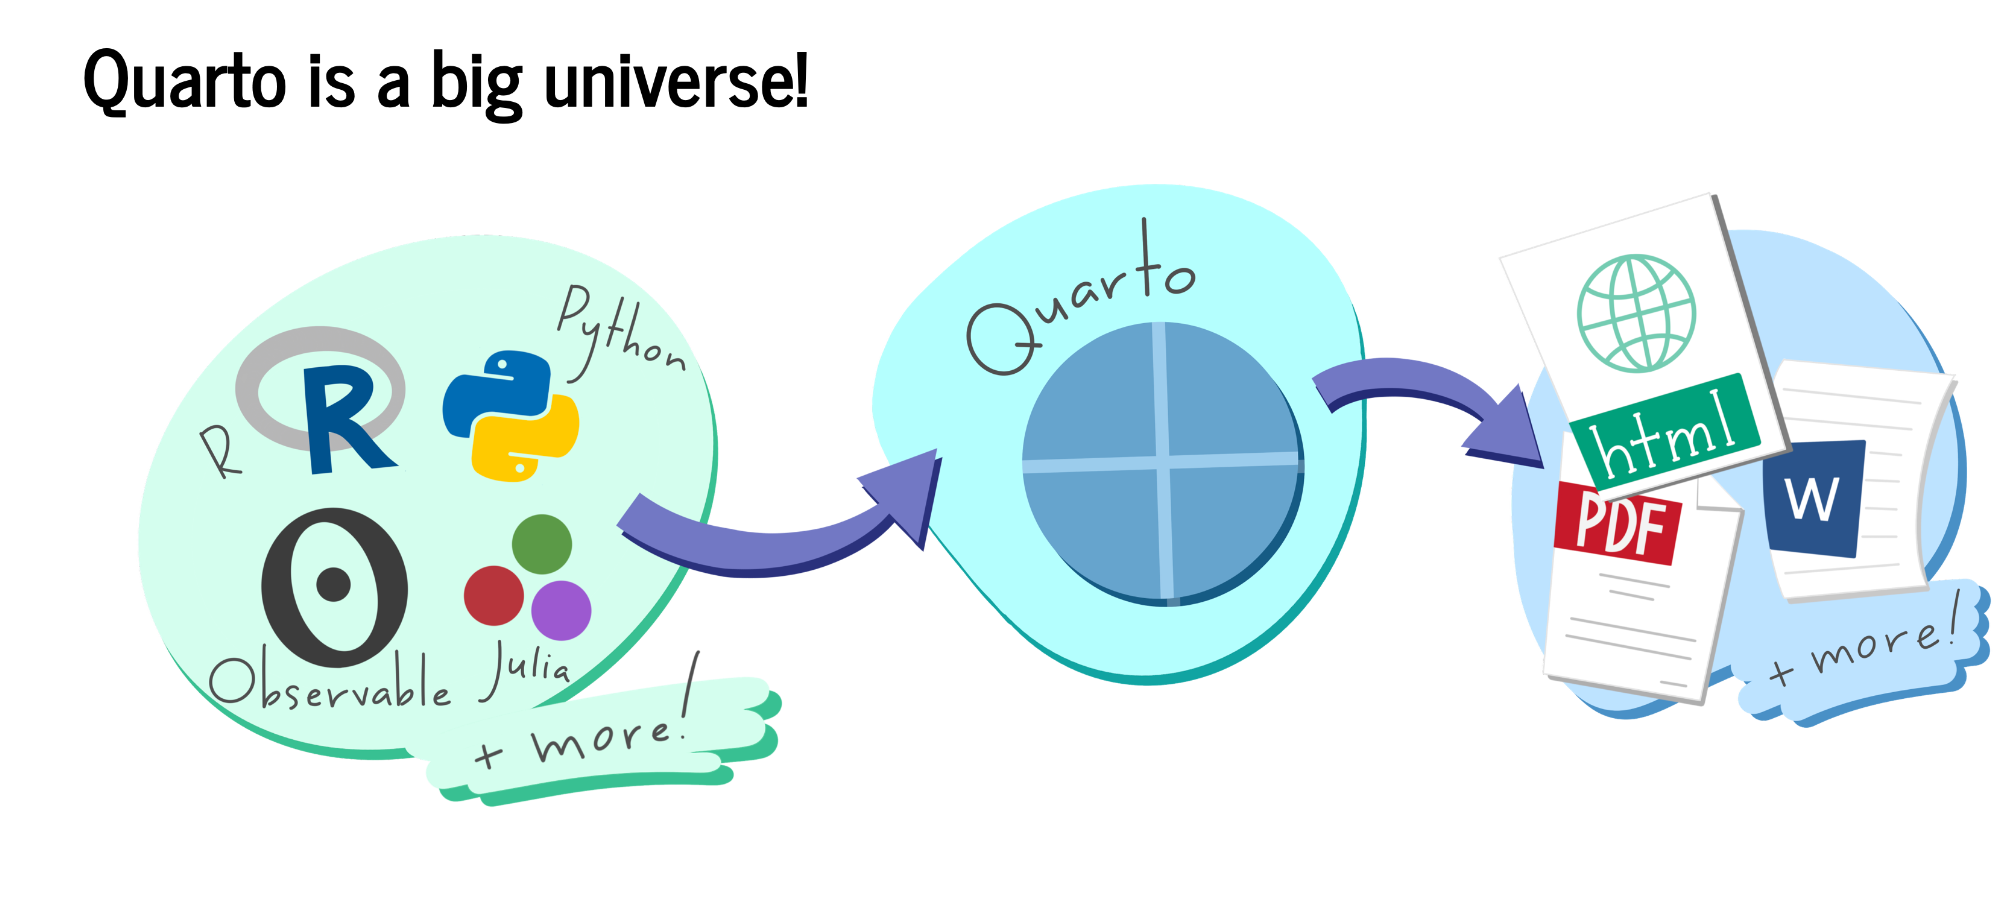 Quarto is a big universe!
R
R
Python
Observable
Julia
+ more!
Quarto
html
PDF
W
+ more!